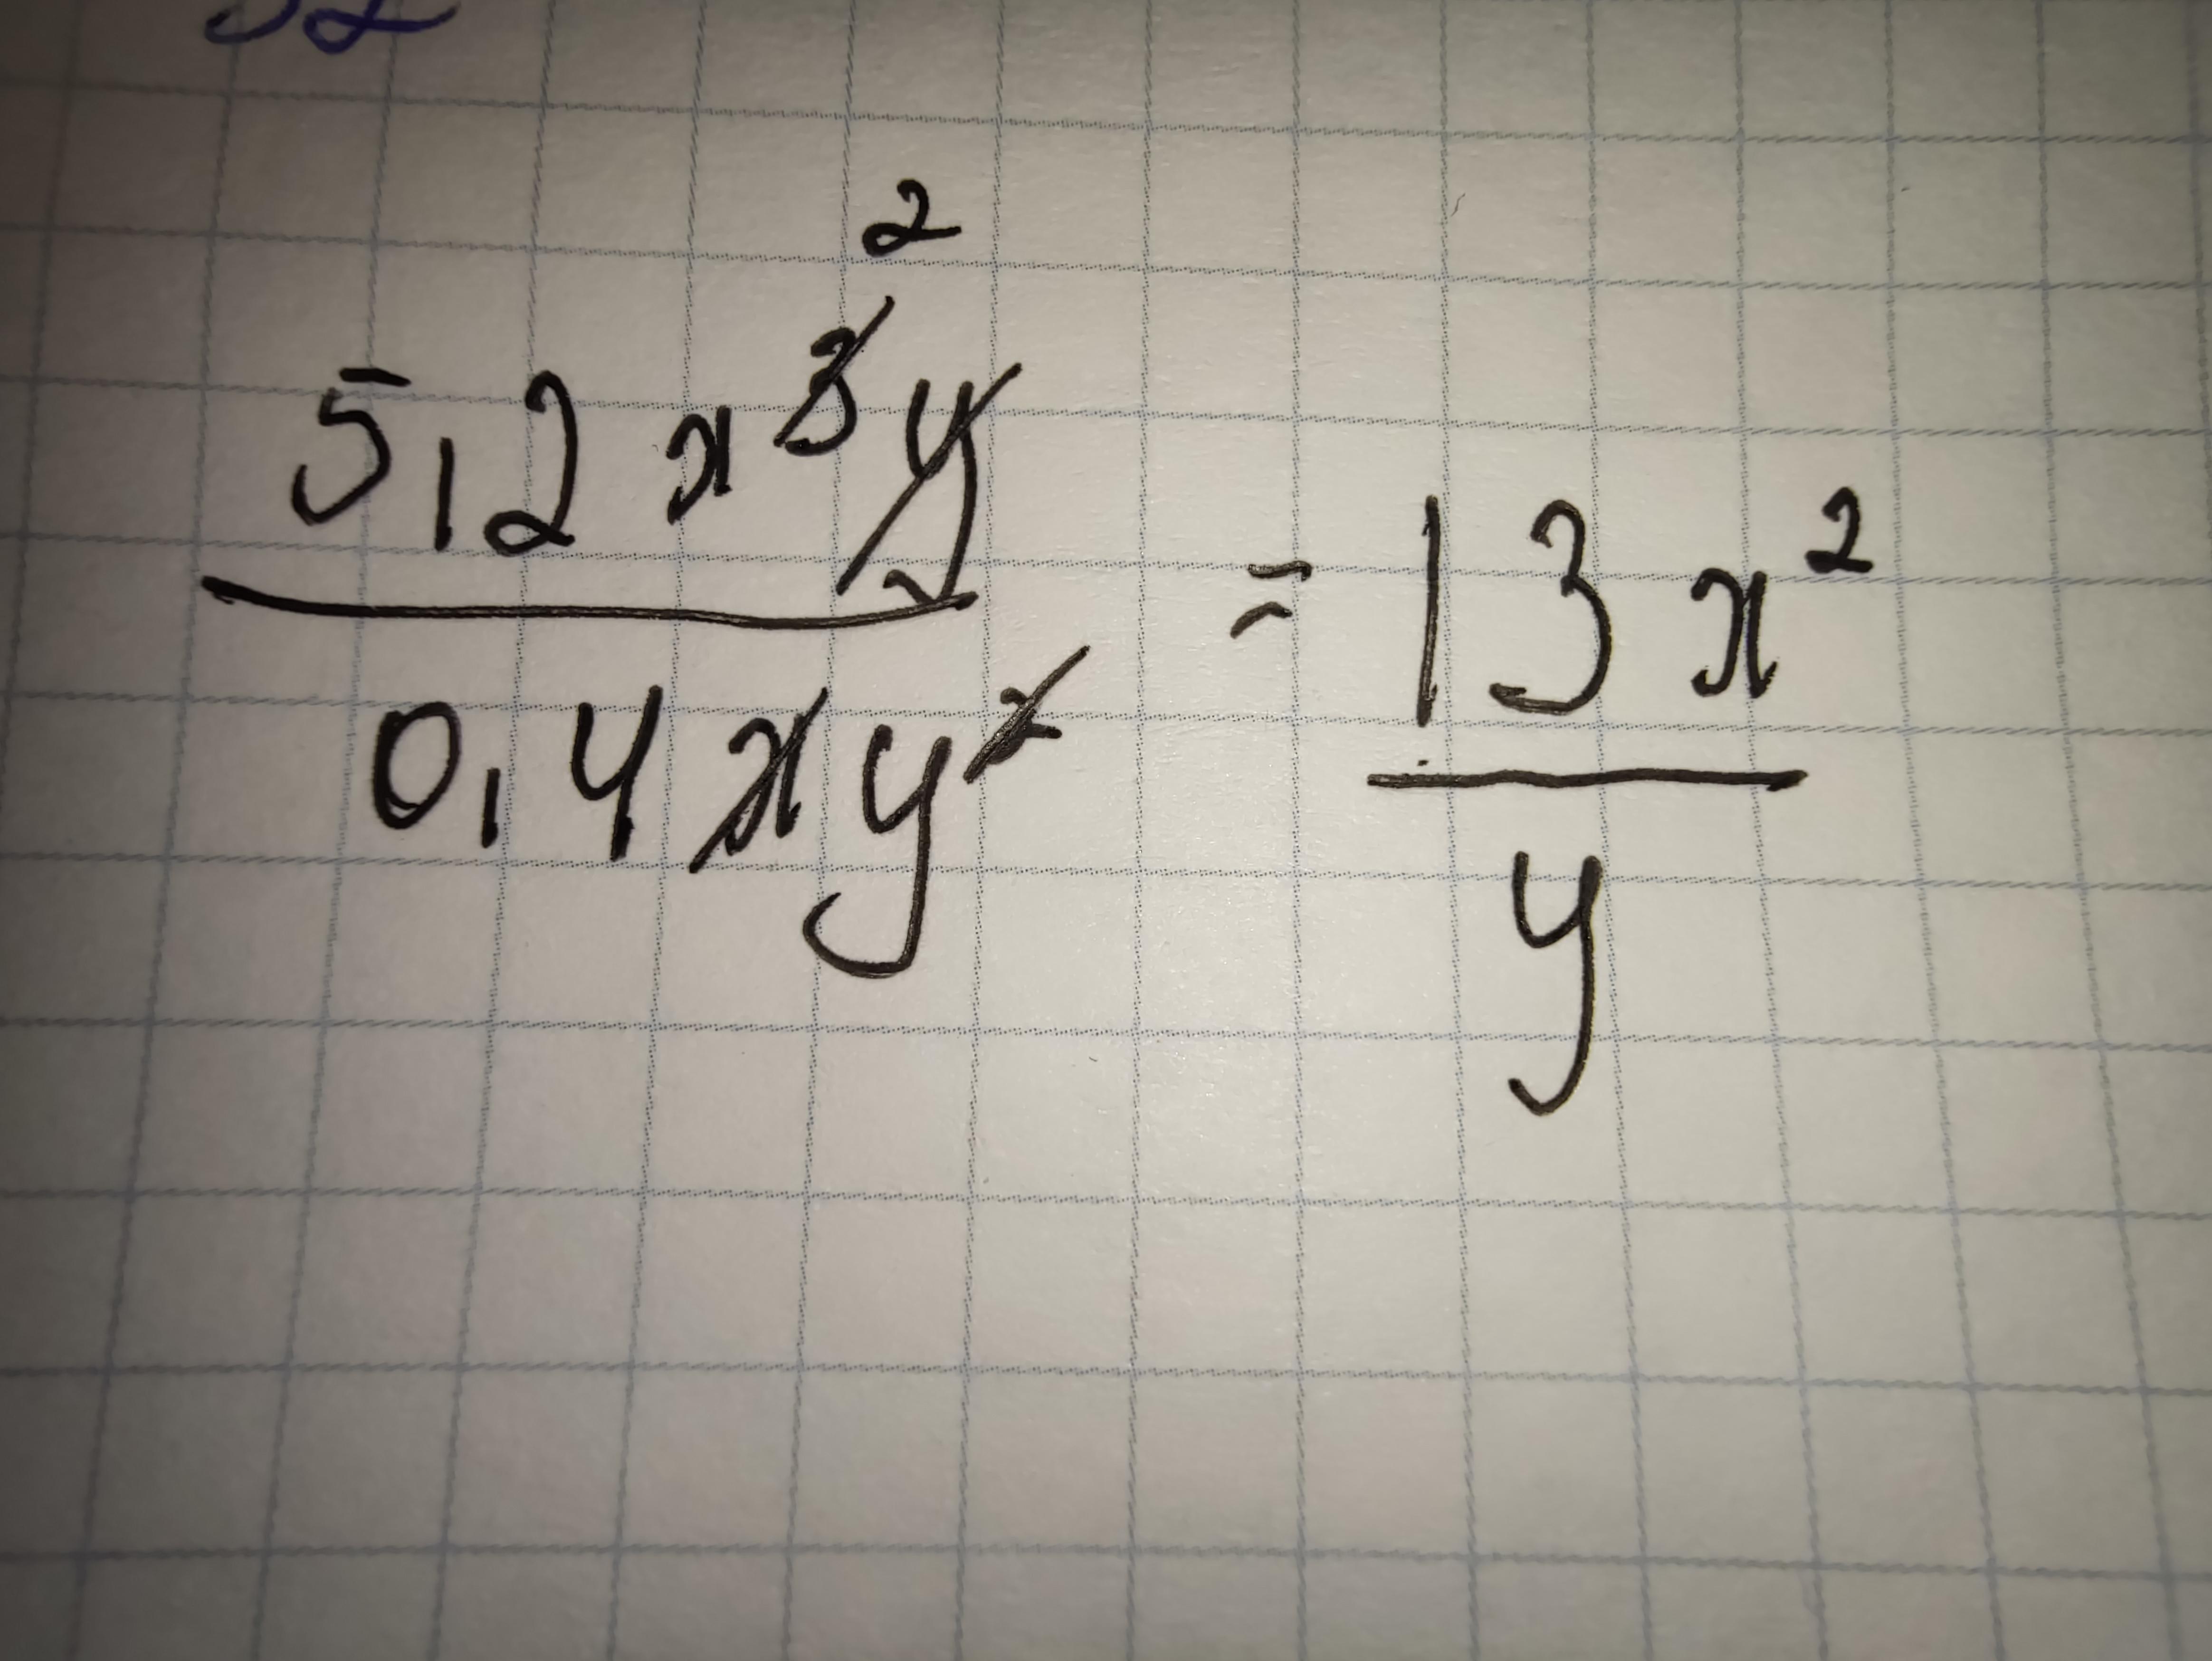 5,2x³y² / 0,4xy² = 13x² / y